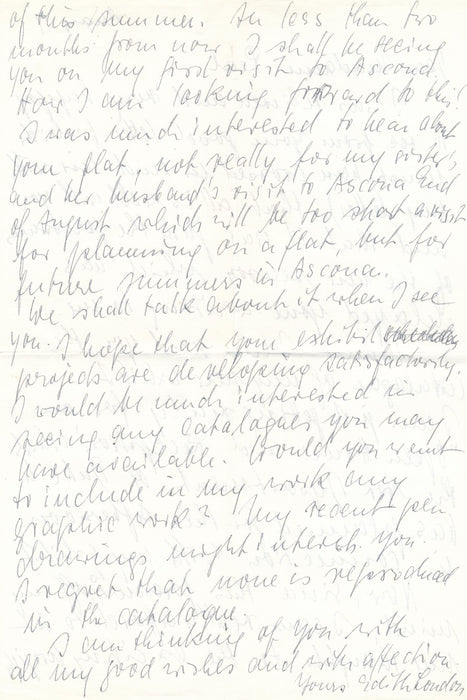 of this summer. In less than two
months from now I shall be seeing
you on my first visit to Ascona.
How I am looking forward to this!
I was much interested to hear about
your flat, not really for my sister's
and her husband's visit to Ascona End
of August which will be too short a visit
for planning on a flat, but for
future summers in Ascona.
We shall talk about it when I see
you. I hope that your exhibit
projects are developing satisfactorily.
I would be much interested in
seeing any catalogues you may
have available. Would you want
to include in my work any
graphic work? My recent pen
drawings might interest you.
I regret that none is reproduced
in the catalogue.
I am thinking of you with
all my good wishes and with affection.
Yours Edith London